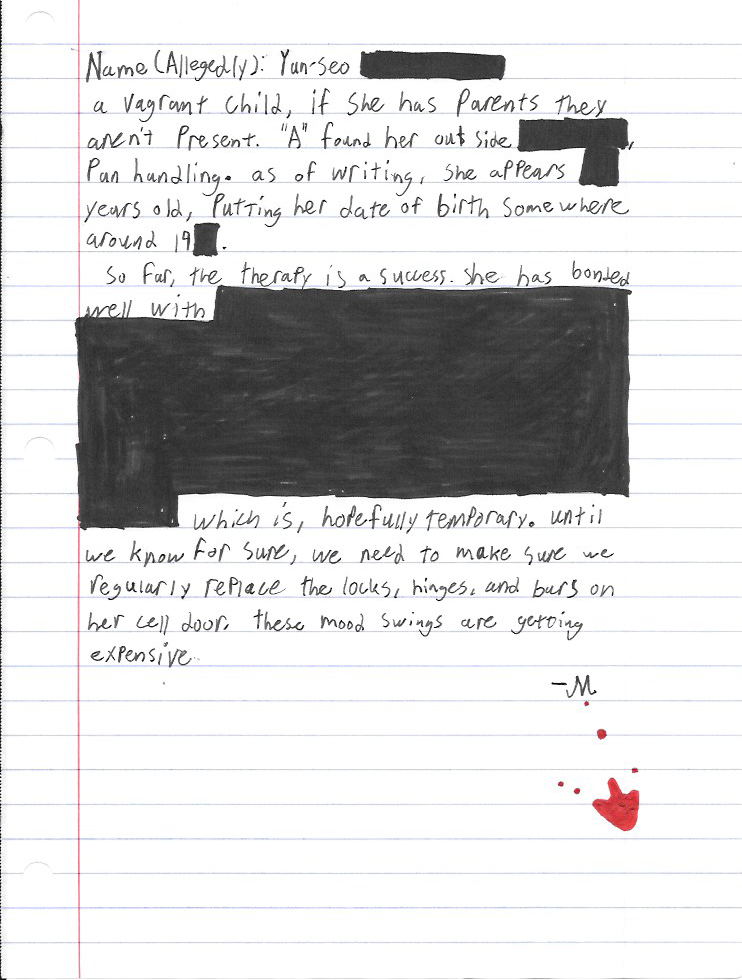 Name (Allegedly): Yun-seo
a vagrant child, if she has Parents they
aren't Present. "A" found her outside ,
Pan handling. as of writing, she appears
years old, Putting her date of birth somewhere
around 19 .
So far, the therapy is a success. she has bonded
well with
which is, hopefully temporary. until
we know for sure, we need to make sure we
regularly replace the locks, hinges, and bars on
her cell door. these mood swings are getting
expensive
-M